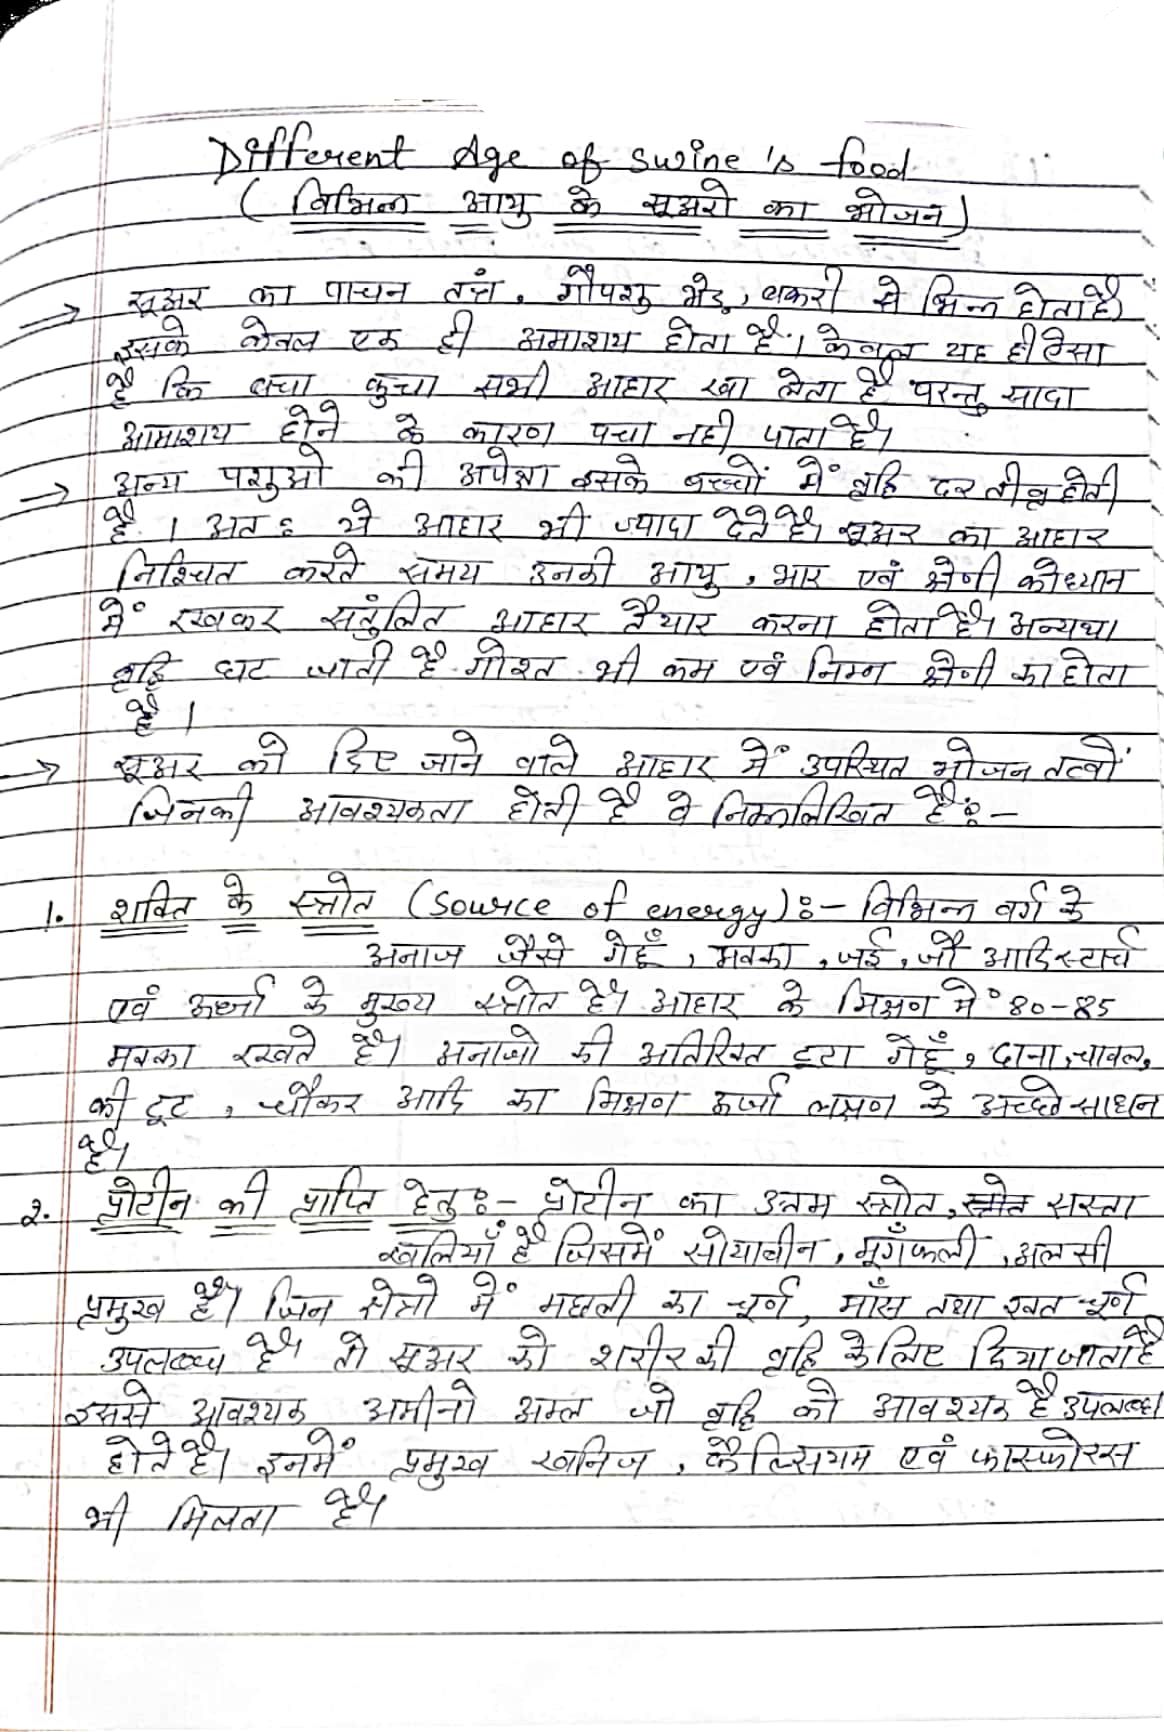 Different Age of swine's food.
(विभिन्न आयु के सूअरो का भोजन)
⇒ सूअर का पाचन तंत्र, गौपशु भेड़, बकरी से भिन्न होता है।
इसके केवल एक ही अमाशय होता है। केवल यह ही ऐसा
है कि बचा कुचा सभी आहार खा लेता है परन्तु सादा
आमाशय होने के कारण पचा नही पाता है।
⇒ अन्य पशुओ की अपेक्षा इसके बच्चों में वृद्धि दर तीव्र होती
है । अतः से आहार भी ज्यादा देते है। सूअर का आहार
निश्चित करते समय उनकी आयु, भार एवं श्रेणी को ध्यान
में रखकर संतुलित आहार तैयार करना होता है। अन्यथा
वृद्धि घट जाती है गोश्त भी कम एवं निम्न श्रेणी का होता
है ।
→ सूअर को दिए जाने वाले आहार में उपस्थित भोजन तत्वों
जिनकी आवश्यकता होती है वे निम्नलिखित हैः-
1. शक्ति के स्त्रोत (Source of energy):- विभिन्न वर्ग के
अनाज जैसे गेहूँ, मक्का, जई, जौ आदि स्टार्च
एवं ऊर्जा के मुख्य स्त्रोत है। आहार के मिश्रण में 80-85
मक्का रखते है। अनाजो की अतिरिक्त टूटा गेहूँ, दाना, चावल,
की टूट, चौकर आदि का मिश्रण ऊर्जा लक्षण के अच्छे साधन
है।
2. प्रोटीन की प्राप्ति हेतुः- प्रोटीन का उत्तम स्त्रोत, स्त्रोत सस्ता
खलियाँ है जिसमें सोयाबीन, मूगँफली, अलसी
प्रमुख है। जिन क्षेत्रो में मछली का चूर्ण, माँस तथा रक्त चूर्ण
उपलब्ध है। तो सूअर को शरीर की वृद्धि के लिए दिया जाता है
इससे आवश्यक अमीनो अम्ल जो वृद्धि को आवश्यक है उपलब्ध
होते है। इनमें प्रमुख खनिज, कैल्सियम एवं फास्फोरस
भी मिलता है।